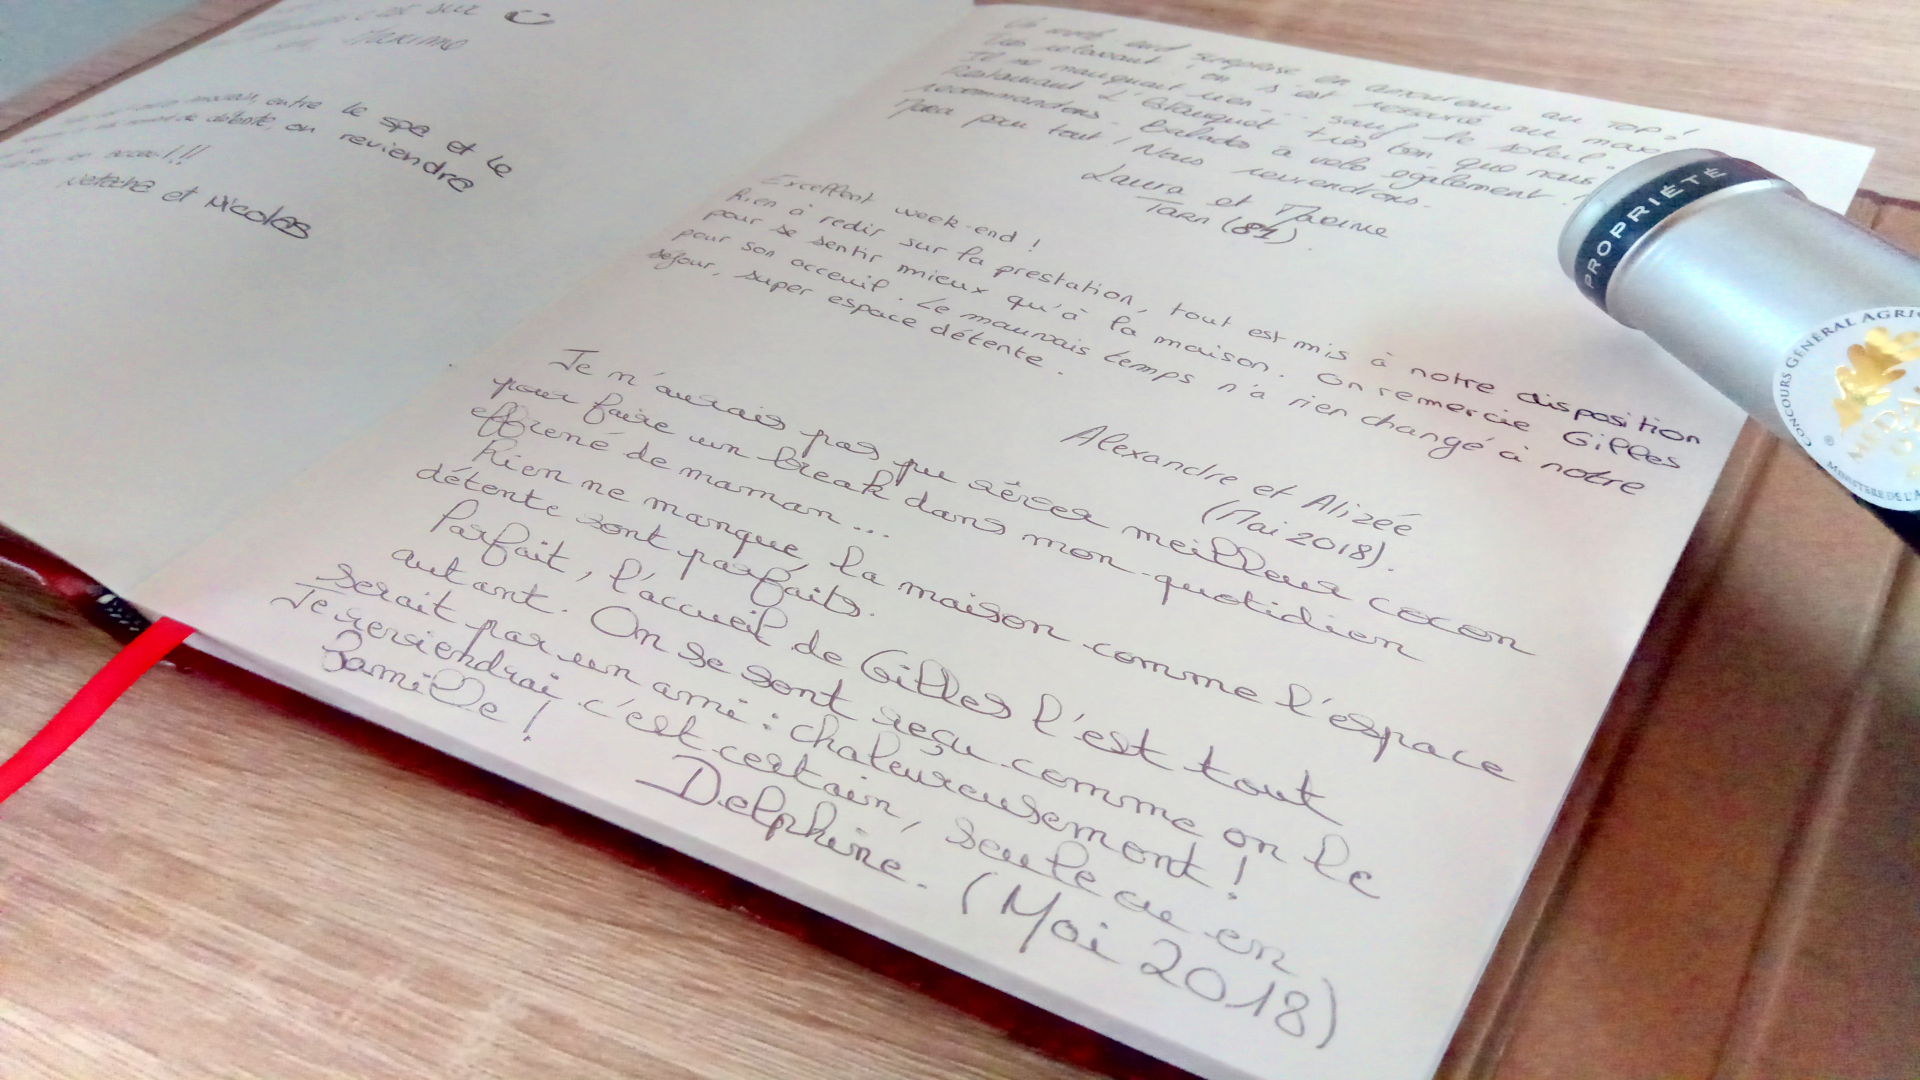 est sur
Maxime
entre le spa et le
de détente, on reviendra
accueil!!
et Nicolas
Un week end surprise en amoureux au TOP!
Très relaxant, on s'est ressourcé au max
Il ne manquait rien... sauf le soleil.
Restaurant très bon que nous
recommandons. Balades à vélo également.
pour tout! Nous reviendrons.
Laura et Maxime
TARN (81).
Excellent week-end!
Rien à redir sur la prestation, tout est mis à notre disposition
pour se sentir mieux qu'à la maison. On remercie Gilles
pour son acceuil. Le mauvais temps n'a rien changé à notre
séjour, super espace détente.
Alexandre et Alizée
(Mai 2018).
Je n'aurais pas pu rêver meilleur cocon
pour faire un break dans mon quotidien
effréné de maman...
Rien ne manque, la maison comme l'espace
détente sont parfaits.
Parfait, l'accueil de Gilles l'est tout
autant. On se sont reçu comme on le
serait par un ami: chaleureusement!
Je reviendrai c'est certain, seule ou en
famille!
Delphine. (Mai 2018)
PROPRIÉTÉ
CONCOURS GÉNÉRAL AGRI
MINISTÈRE DE L'A